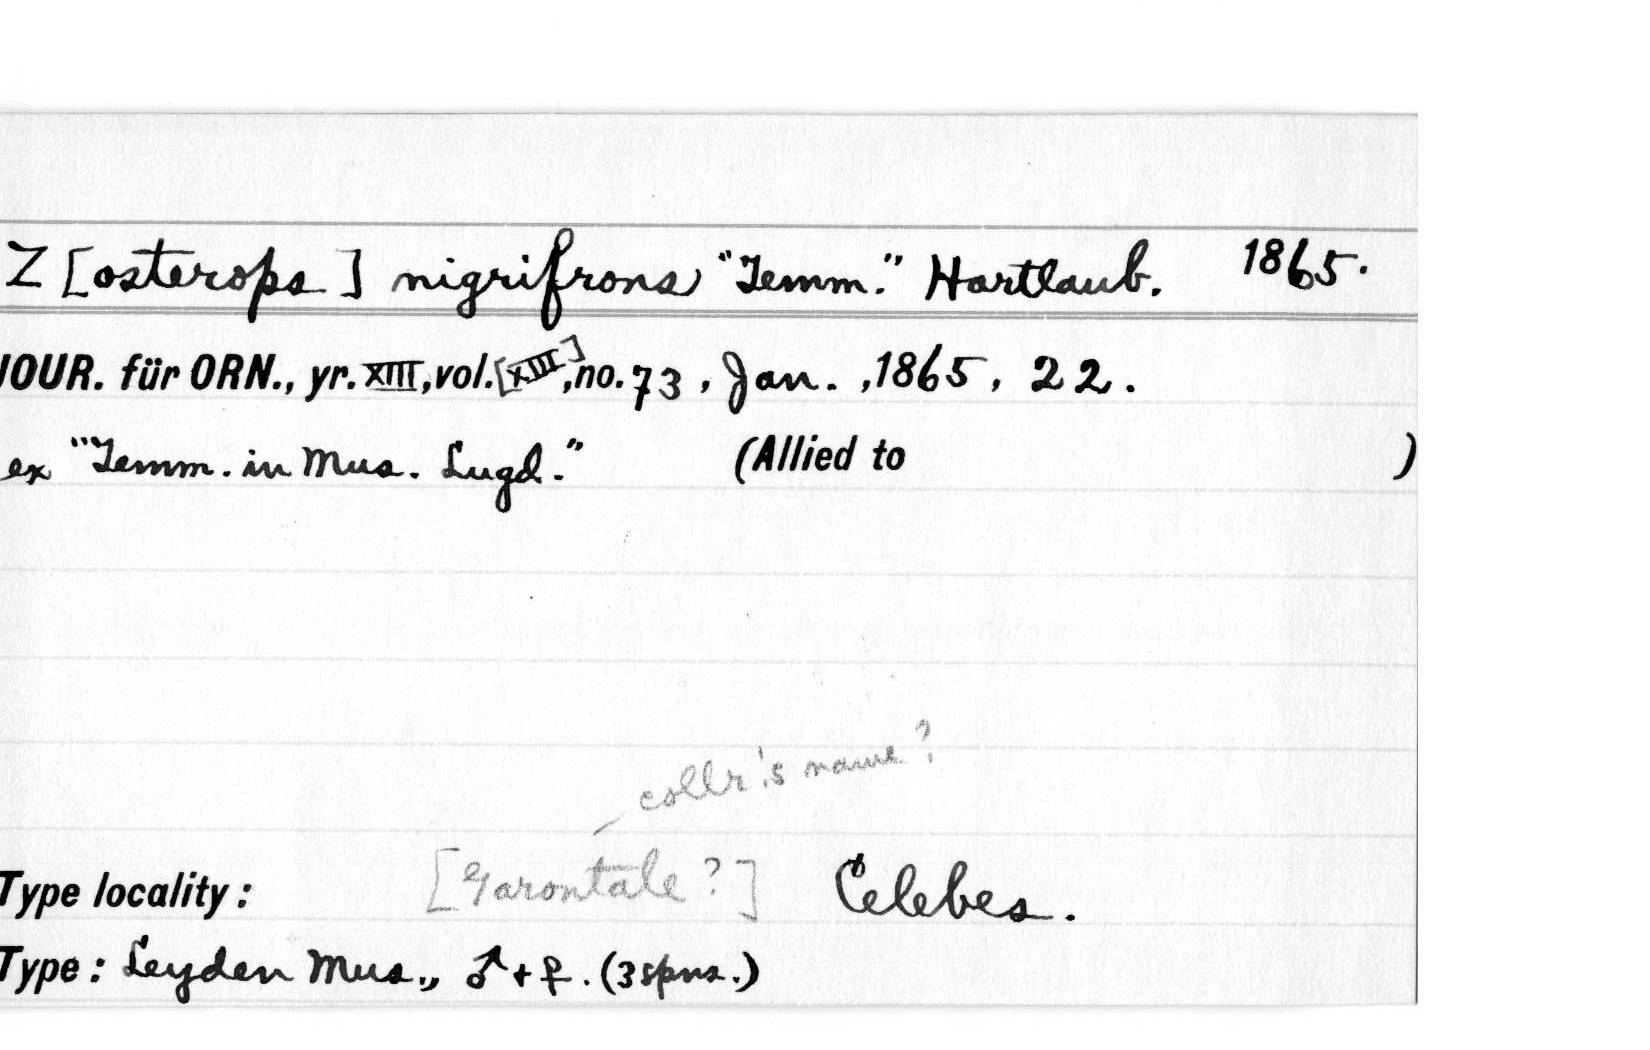 Z [osterops] nigrifrons "Temm." Hartlaub. 1865.
JOUR. für ORN., yr. XIII, vol. [XIII], no. 73, Jan., 1865, 22.
ex "Temm. in Mus. Lugd." (Allied to )
collr's name?
Type locality: [Garontale?] Celebes.
Type: Leyden Mus., ♂ + ♀. (3 spns.)